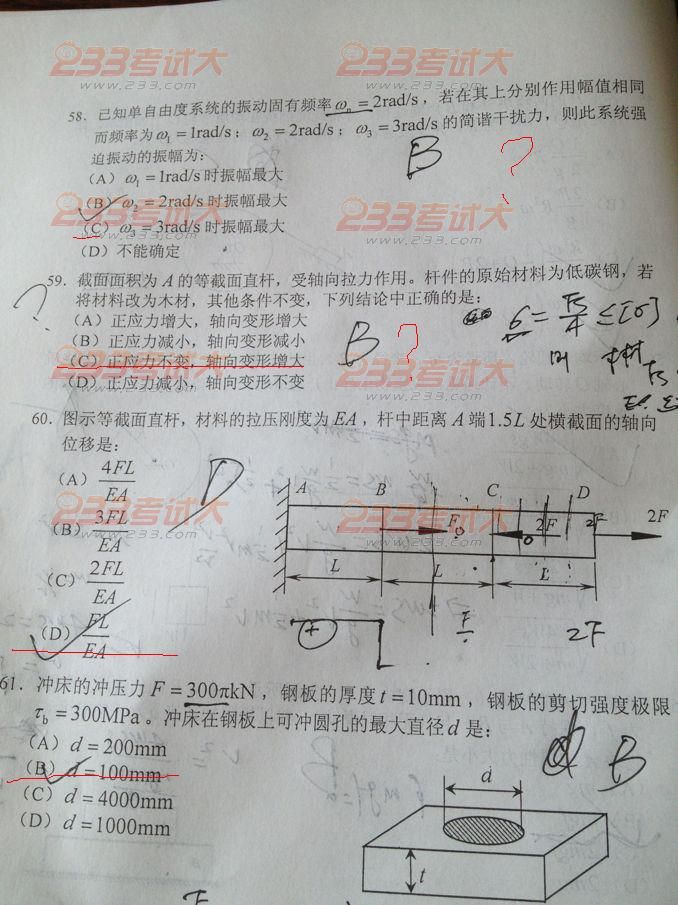 233考试大 233考试大
www.233.com www.233.com
58. 已知单自由度系统的振动固有频率ωn = 2rad/s，若在其上分别作用幅值相同
而频率为ω1 = 1rad/s；ω2 = 2rad/s；ω3 = 3rad/s的简谐干扰力，则此系统强
迫振动的振幅为：
B ?
(A) ω1 = 1rad/s时振幅最大
(B) ω2 = 2rad/s时振幅最大
(C) ω3 = 3rad/s时振幅最大
(D) 不能确定
233考试大 233考试大
www.233.com www.233.com
59. 截面面积为A的等截面直杆，受轴向拉力作用。杆件的原始材料为低碳钢，若
将材料改为木材，其他条件不变，下列结论中正确的是：
?
(A) 正应力增大，轴向变形增大
(B) 正应力减小，轴向变形减小
(C) 正应力不变，轴向变形增大
(D) 正应力减小，轴向变形不变
B ?
233考试大 233考试大
www.233.com www.233.com
60. 图示等截面直杆，材料的拉压刚度为EA，杆中距离A端1.5L处横截面的轴向
位移是：
(A) 4FL/EA
(B) 3FL/EA
(C) 2FL/EA
(D) FL/EA
D
A B C D
F 2F 2F 2F
L L L
+ F 2F
233考试大 233考试大
www.233.com www.233.com
61. 冲床的冲压力F = 300πkN，钢板的厚度t = 10mm，钢板的剪切强度极限
τb = 300MPa。冲床在钢板上可冲圆孔的最大直径d是：
(A) d = 200mm
(B) d = 100mm
(C) d = 4000mm
(D) d = 1000mm
d B
d
t